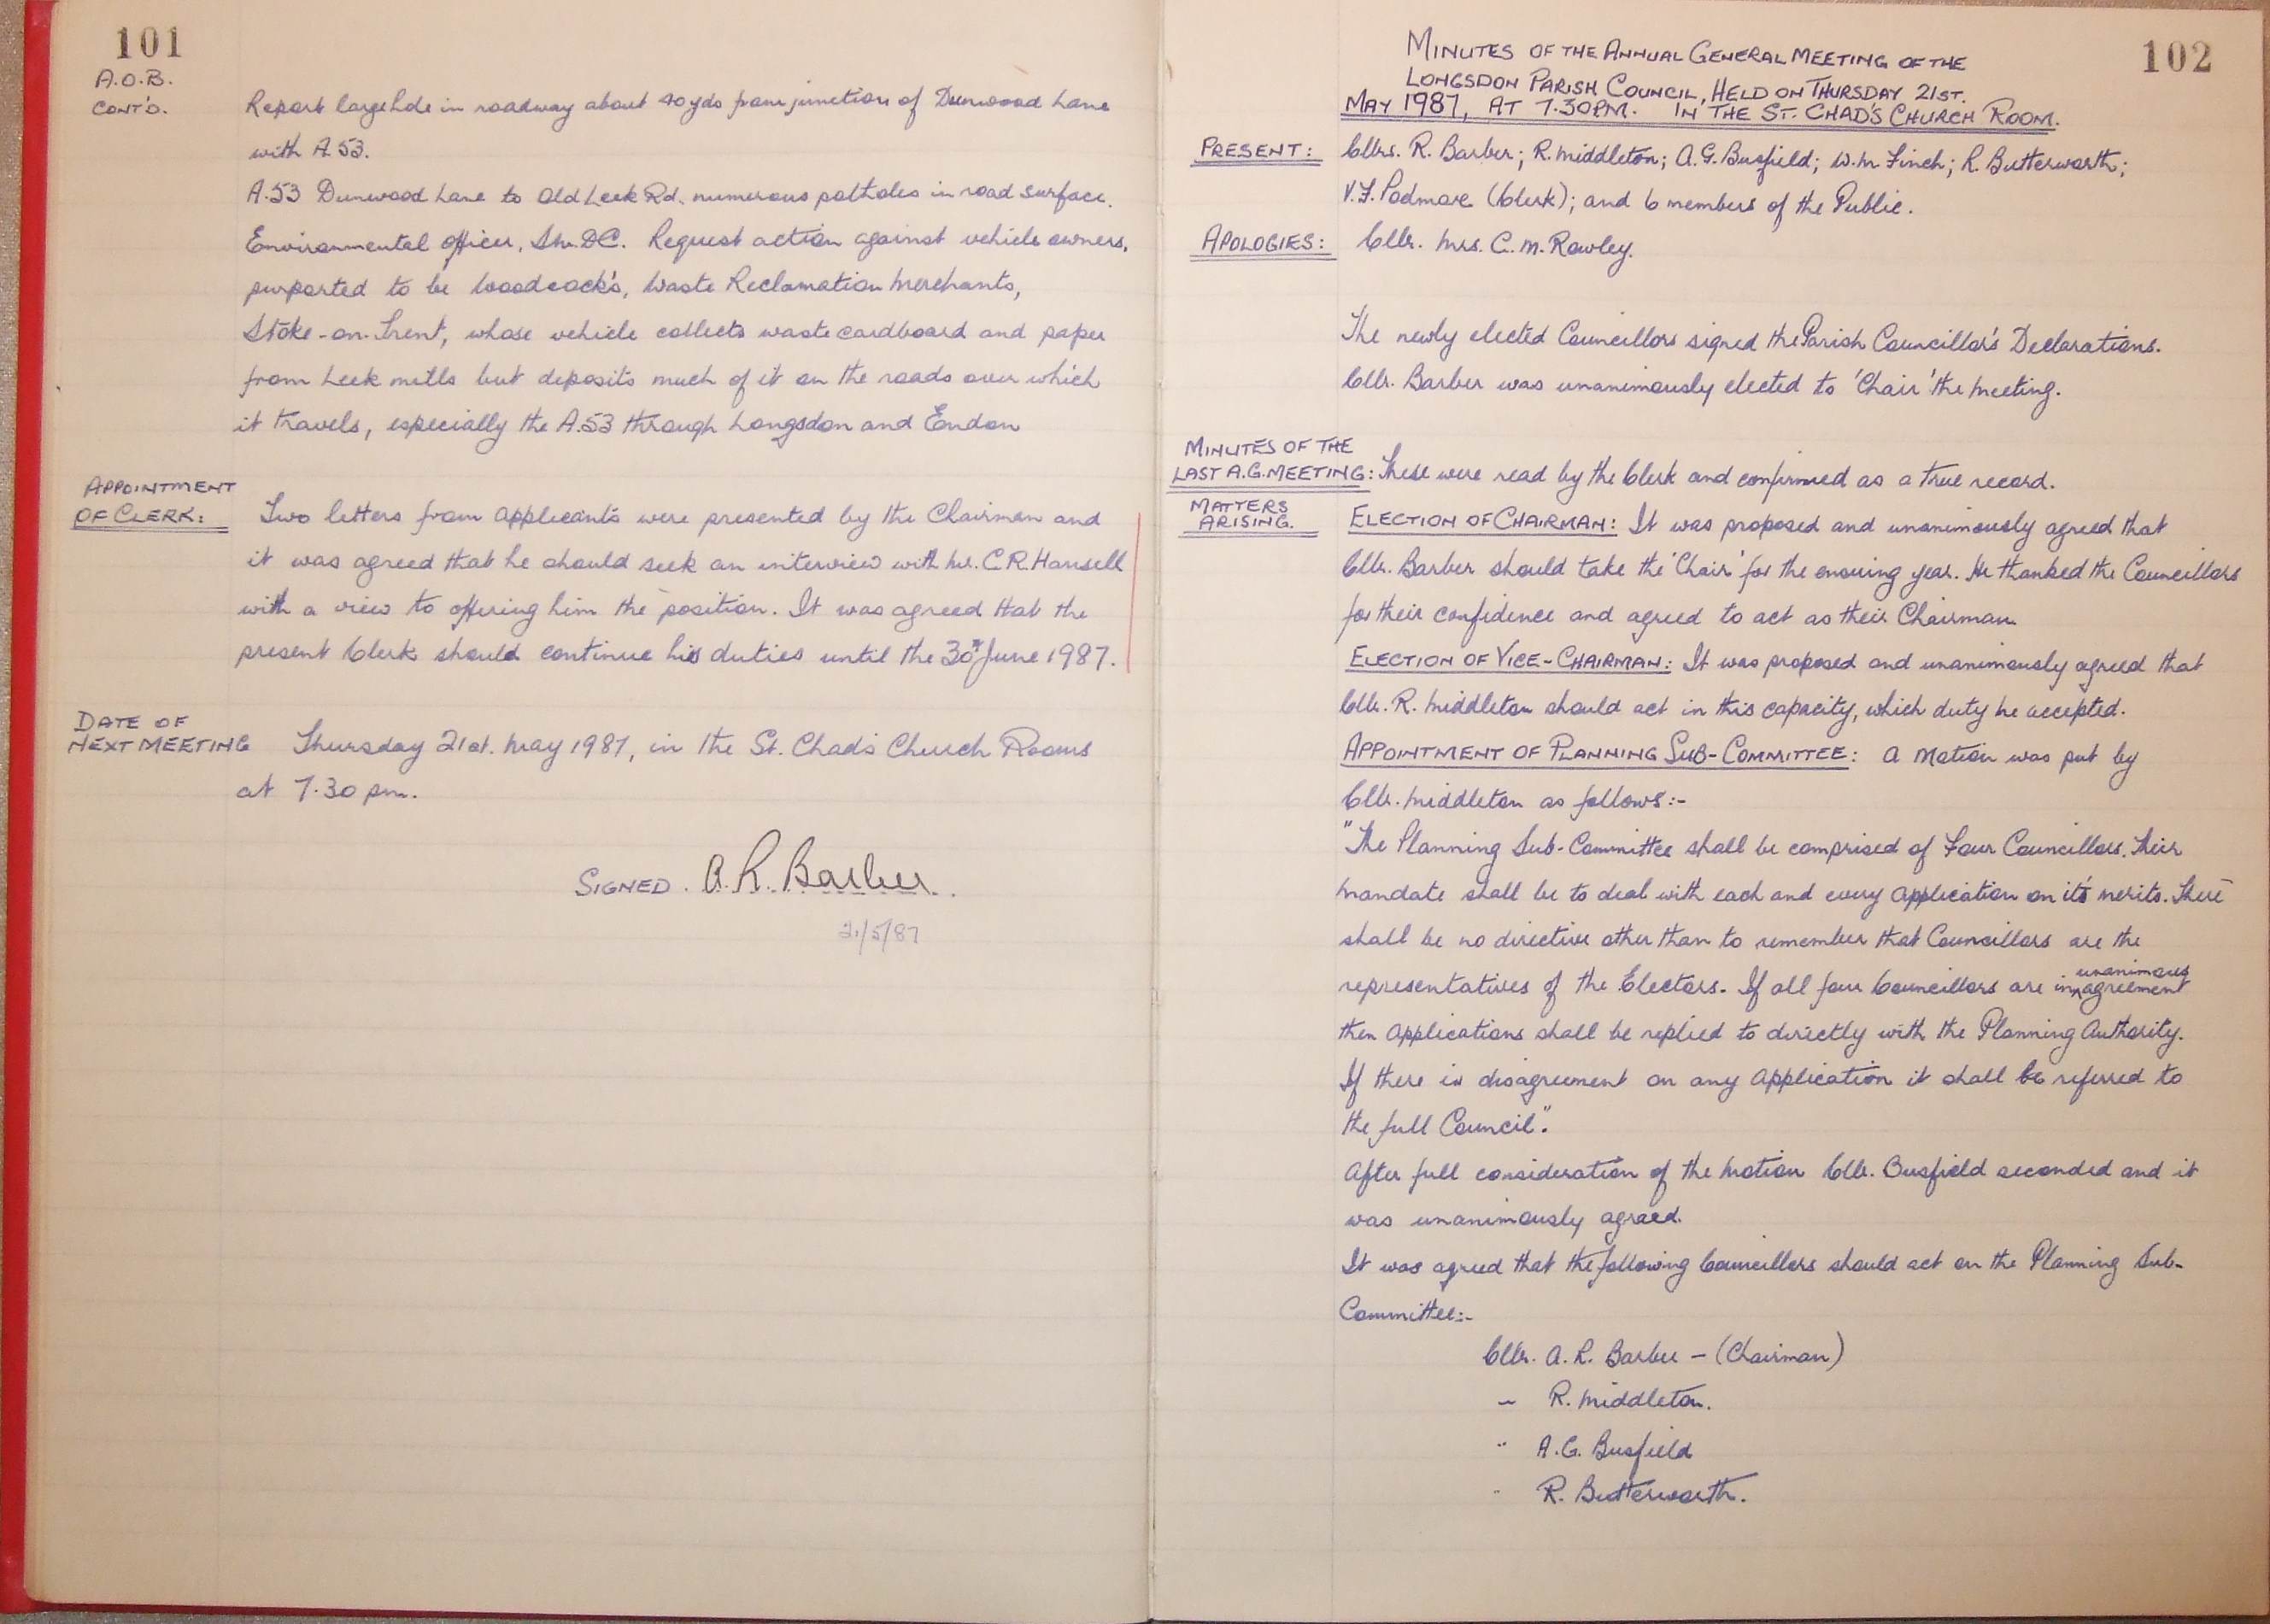 101
A.O.B.
CONT'D.
Report large hole in roadway about 40yds from junction of Dunwood Lane
with A.53.
A.53 Dunwood Lane to Old Leek Rd. numerous potholes in road surface.
Environmental officer, S.M.D.C. Request action against vehicle owners,
purported to be Woodcock's, Waste Reclamation Merchants,
Stoke-on-Trent, whose vehicle collects waste cardboard and paper
from Leek mills but deposits much of it on the roads over which
it travels, especially the A.53 through Longsdon and Endon
APPOINTMENT
OF CLERK:
Two letters from applicants were presented by the Chairman and
it was agreed that he should seek an interview with Mr. C.R. Hansell
with a view to offering him the position. It was agreed that the
present Clerk should continue his duties until the 30th June 1987.
DATE OF
NEXT MEETING
Thursday 21st. May 1987, in the St. Chad's Church Rooms
at 7.30 pm.
SIGNED. A.R. Barber.
21/5/87
102
MINUTES OF THE ANNUAL GENERAL MEETING OF THE
LONGSDON PARISH COUNCIL, HELD ON THURSDAY 21ST.
MAY 1987, AT 7.30PM. IN THE ST. CHAD'S CHURCH ROOM.
PRESENT: Cllrs. R. Barber; R. Middleton; A.G. Busfield; W.M Finch; R. Butterworth;
V.F. Podmore (Clerk); and 6 members of the Public.
APOLOGIES: Cllr. Mrs. C.M. Rowley.
The newly elected Councillors signed the Parish Councillor's Declarations.
Cllr. Barber was unanimously elected to 'Chair' the Meeting.
MINUTES OF THE
LAST A.G. MEETING: These were read by the Clerk and confirmed as a true record.
MATTERS
ARISING.
ELECTION OF CHAIRMAN: It was proposed and unanimously agreed that
Cllr. Barber should take the 'Chair' for the ensuing year. He thanked the Councillors
for their confidence and agreed to act as their Chairman.
ELECTION OF VICE-CHAIRMAN: It was proposed and unanimously agreed that
Cllr. R. Middleton should act in this capacity, which duty he accepted.
APPOINTMENT OF PLANNING SUB-COMMITTEE: A Motion was put by
Cllr. Middleton as follows:-
"The Planning Sub-Committee shall be comprised of Four Councillors. Their
Mandate shall be to deal with each and every Application on it's merits. There
shall be no directive other than to remember that Councillors are the
representatives of the Electors. If all four Councillors are in unanimous agreement
then Applications shall be replied to directly with the Planning Authority.
If there is disagreement on any Application it shall be referred to
the full Council".
After full consideration of the Motion Cllr. Busfield seconded and it
was unanimously agreed.
It was agreed that the following Councillors should act on the Planning Sub-
Committee:-
Cllr. A.R. Barber - (Chairman)
" R. Middleton.
" A.G. Busfield
" R. Butterworth.